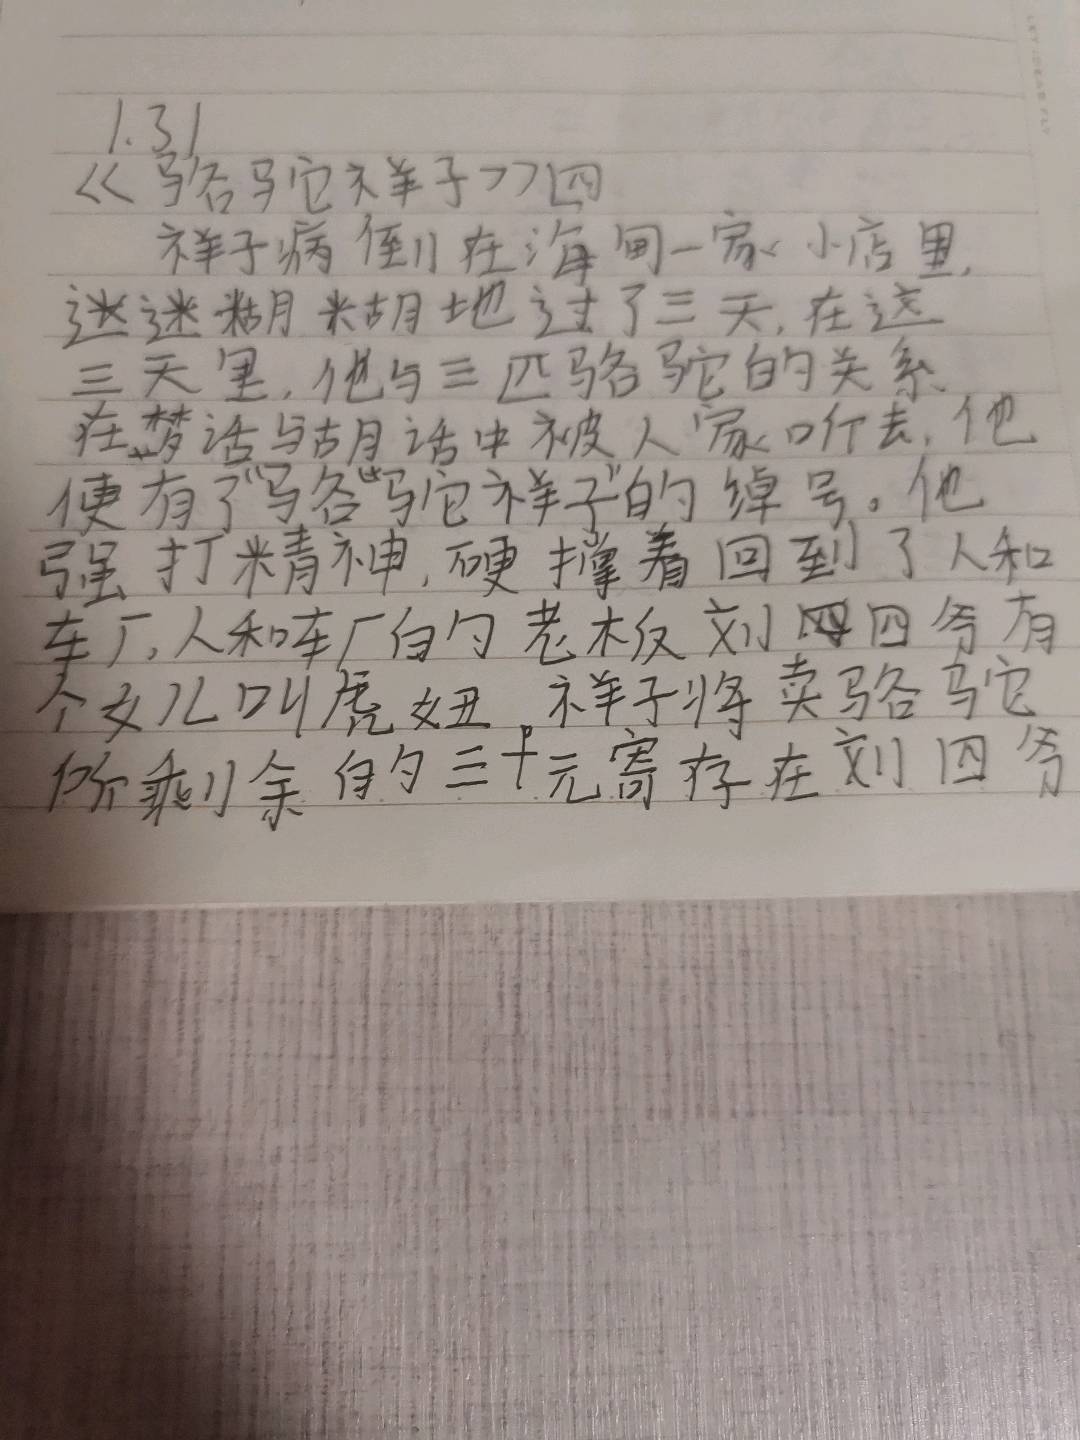 1.31
《骆驼祥子》四
祥子病倒在海甸一家小店里,
迷迷糊糊地过了三天,在这
三天里,他与三匹骆驼的关系
在梦话与胡话中被人家听去,他
便有了"骆驼祥子"的绰号。他
强打精神,硬撑着回到了人和
车厂,人和车厂的老板刘四爷有
个女儿叫虎妞,祥子将卖骆驼
所剩余的三十元寄存在刘四爷